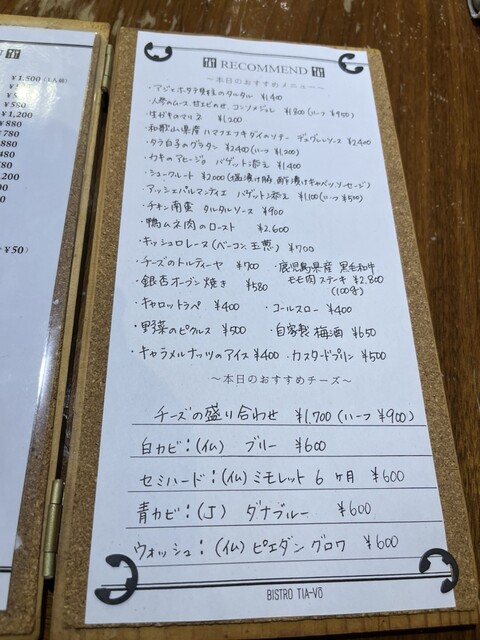 RECOMMEND
～本日のおすすめメニュー～
・アジとホタテ貝柱のタルタル ¥1,400
・人参のムース、甘エビのせ、コンソメジュレ ¥1,800 (ハーフ ¥950)
・生ガキのマリネ ¥1,200
・和歌山県産 ハマフエフキダイのソテー デュグレレソース ¥2,400
・タラ白子のグラタン ¥2,400 (ハーフ ¥1,200)
・カキのアヒージョ バゲット添え ¥1,400
・シュークルート ¥2,000 (塩漬け豚、酢漬けキャベツ、ソーセージ)
・アッシェパルマンティエ バゲット添え ¥1,100 (ハーフ ¥500)
・チキン南蛮 タルタルソース ¥900
・鴨ムネ肉のロースト ¥2,600
・キッシュロレーヌ (ベーコン、玉葱) ¥700
・チーズのトルティーヤ ¥700 ・鹿児島県産 黒毛和牛
モモ肉ステーキ ¥2,800
(100g)
・銀杏オーブン焼き ¥580
・キャロットラペ ¥400 ・コールスロー ¥400
・野菜のピクルス ¥500 ・自家製 梅酒 ¥650
・キャラメルナッツのアイス ¥400 ・カスタードプリン ¥500
～本日のおすすめチーズ～
チーズの盛り合わせ ¥1,700 (ハーフ ¥900)
白カビ：(仏) ブリー ¥600
セミハード：(仏) ミモレット 6ヶ月 ¥600
青カビ：(J) ダナブルー ¥600
ウォッシュ：(仏) ピエダングロワ ¥600
BISTRO TIA-VÖ
¥1,500 (1人前)
¥550
¥1,200
¥880
¥780
¥880
¥480
¥580
¥580
+¥50)